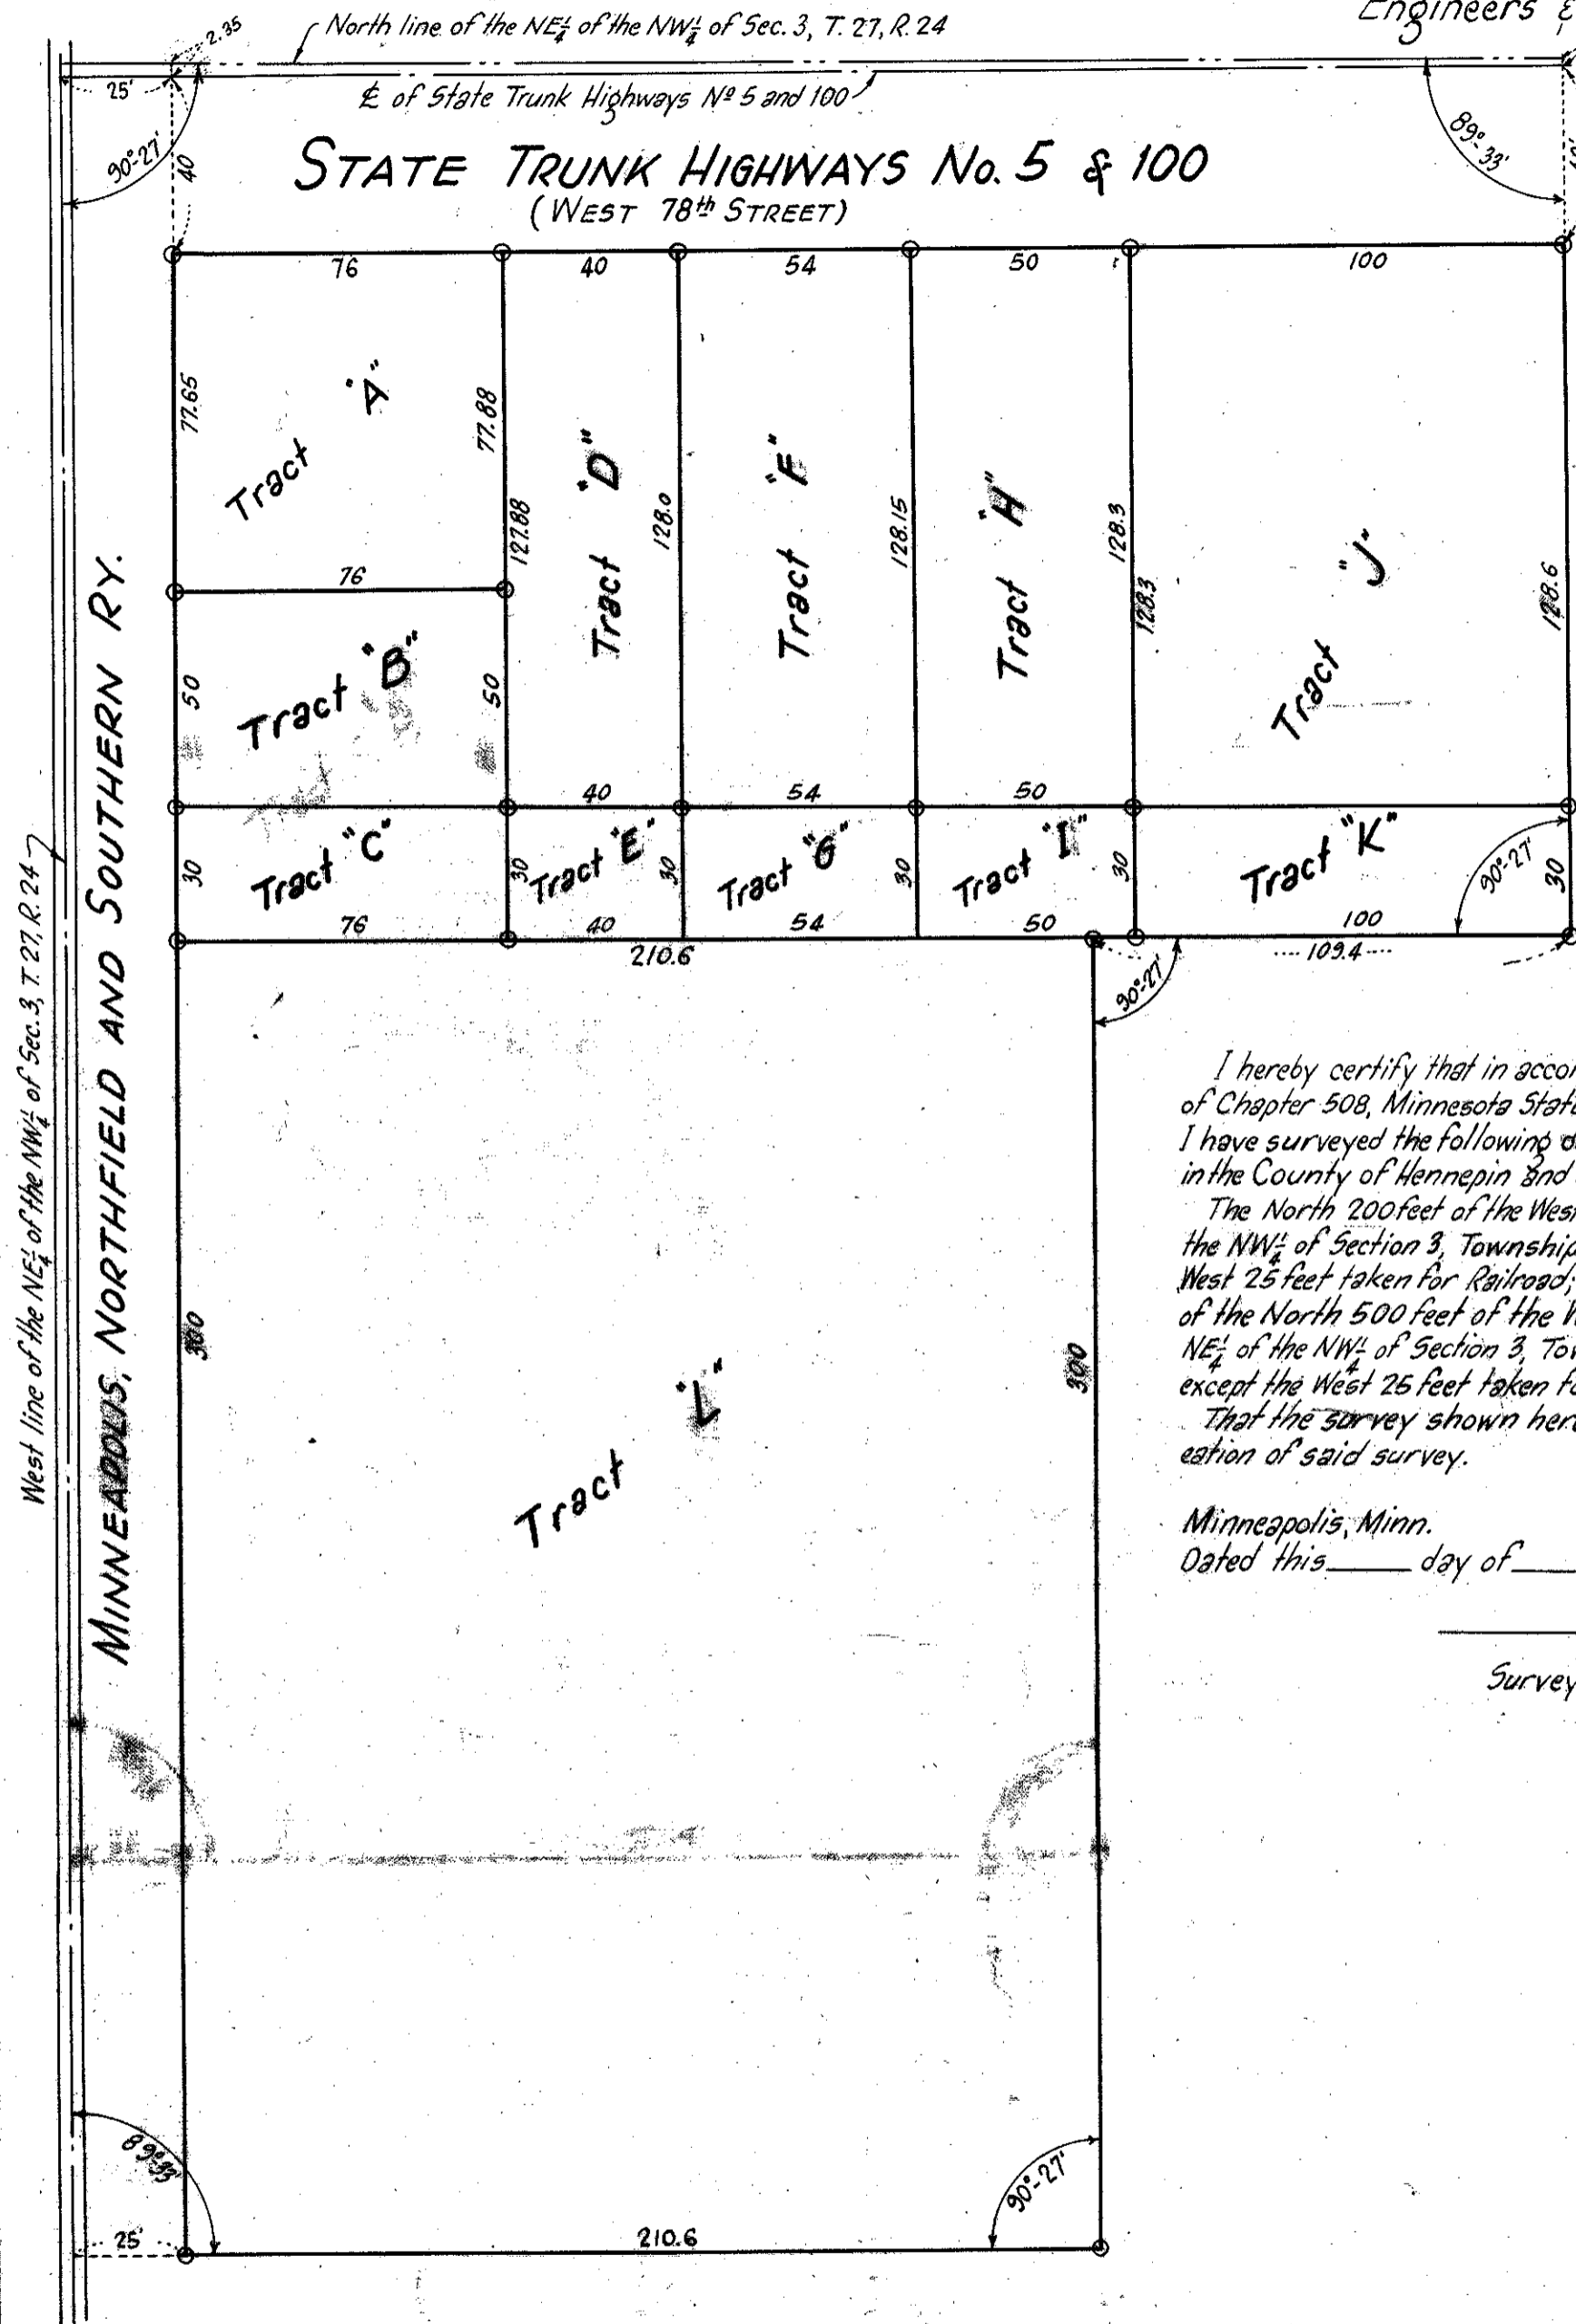 Engineers &
2.35
North line of the NE¼ of the NW¼ of Sec. 3, T. 27, R. 24
25'
℄ of State Trunk Highways Nº 5 and 100
90°-27'
40
89°-33'
STATE TRUNK HIGHWAYS No. 5 & 100
(WEST 78th STREET)
76
40
54
50
100
77.65
Tract "A"
77.88
127.88
Tract "D"
128.0
Tract "F"
128.15
Tract "H"
128.3
128.3
Tract "J"
128.6
76
50
Tract "B"
50
40
54
50
30
Tract "C"
30
Tract "E"
30
Tract "G"
30
Tract "I"
30
Tract "K"
90°-27'
30
76
40
54
50
100
210.6
109.4
90°-27'
West line of the NE¼ of the NW¼ of Sec. 3, T. 27, R. 24
MINNEAPOLIS, NORTHFIELD AND SOUTHERN RY.
I hereby certify that in accor
of Chapter 508, Minnesota Stat
I have surveyed the following
in the County of Hennepin and
The North 200 feet of the Wes
the NW¼ of Section 3, Township
West 25 feet taken for Railroad;
of the North 500 feet of the W
NE¼ of the NW¼ of Section 3, Tow
except the West 25 feet taken fo
That the survey shown her
eation of said survey.
300
300
Tract "L"
Minneapolis, Minn.
Dated this____ day of____
Survey
89°-33'
90°-27'
25'
210.6